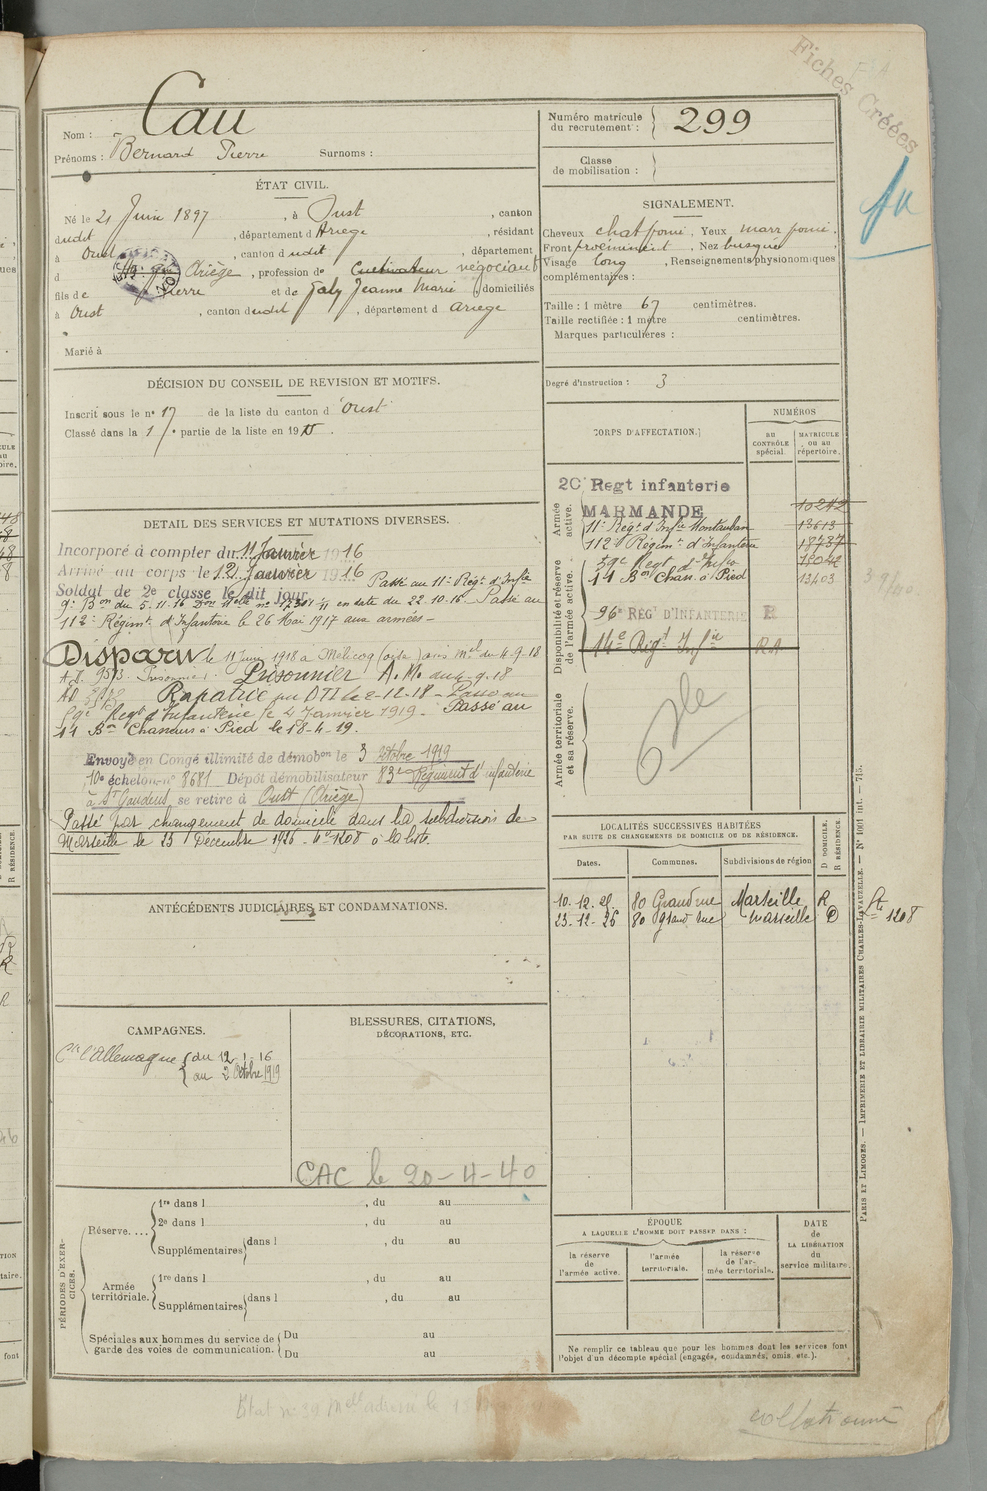 Fiches Créées
Nom : Cau
Prénoms : Bernard Pierre Surnoms :
Numéro matricule du recrutement : 299
Classe de mobilisation :
ÉTAT CIVIL.
Né le 21 Juin 1897, à Oust, canton
dudit, département d Ariege, résidant
à Oust, canton dudit, département
d Ariège, profession de Cultivateur négociant
fils de Pierre et de Galy Jeanne Marie, domiciliés
à Oust, canton dudit, département d Ariege
Marié à
SIGNALEMENT.
Cheveux chat foncé, Yeux marr foncé.
Front proéminent, Nez busqué,
Visage long, Renseignements physionomiques
complémentaires :
Taille : 1 mètre 67 centimètres.
Taille rectifiée : 1 mètre centimètres.
Marques particulières :
Degré d'instruction : 3
DÉCISION DU CONSEIL DE REVISION ET MOTIFS.
Inscrit sous le n° 17 de la liste du canton d Oust
Classé dans la 1re partie de la liste en 19
CORPS D'AFFECTATION.
NUMÉROS
AU CONTRÔLE spécial.
MATRICULE ou au répertoire.
Armée active.
20 Regt infanterie
MARMANDE 10242
11e Régt d'Infie Montauban 13613
112e Régimt d'Infanterie 18737
Disponibilité et réserve de l'armée active.
59e Regt d'Infie 18042
11 Bon Chass. à Pied 13403
96e REGt D'INFANTERIE R
14e Rigt Infie R.A
Armée territoriale et sa réserve.
DETAIL DES SERVICES ET MUTATIONS DIVERSES.
Incorporé à compter du 11 Janvier 1916
Arrivé au corps le 12 Janvier 1916
Soldat de 2e classe le dit jour Passé au 11e Régt d'Infie
9e Bon du 5.11.16 Don Mlle no en date du 22.10.16 Passé au
112e Régimt d'Infanterie le 26 Mai 1917 aux armées
Disparu le 11 Juin 1918 à Mélicoq (oise) avis Mel du 4-9-18
Prisonnier A.M. du 4-9-18
Rapatrié au DTI le 2-12-18 Passé au
59e Regt d'Infanterie le 2 Janvier 1919. Passé au
11 Bon Chasseurs à Pied le 18-4-19.
Envoyé en Congé illimité de démobon le 3 octobre 1919
10e échelon n° 8681 Dépôt démobilisateur 83e Régiment d'infanterie
à St Gaudens se retire à Oust (Ariège)
Passé par changement de domicile dans la subdivision de
Marseille le 23 Décembre 1926 n° 1208 à la liste.
LOCALITÉS SUCCESSIVES HABITÉES
PAR SUITE DE CHANGEMENTS DE DOMICILE OU DE RÉSIDENCE.
Dates. Communes. Subdivisions de région D DOMICILE. R RÉSIDENCE.
10.12.25 80 Grand rue Marseille R
23-12-26 80 grand rue Marseille D 1208
ANTÉCÉDENTS JUDICIAIRES ET CONDAMNATIONS.
CAMPAGNES.
Cre l'Allemagne du 12 1 16
au 2 Octobre 1919
BLESSURES, CITATIONS,
DÉCORATIONS, ETC.
CAC le 20-4-40
PÉRIODES D'EXERCICES.
Réserve....
1re dans l , du au
2e dans l , du au
Supplémentaires dans l , du au
Armée territoriale.
1re dans l , du au
Supplémentaires dans l , du au
Spéciales aux hommes du service de garde des voies de communication.
Du au
Du au
ÉPOQUE
A LAQUELLE L'HOMME DOIT PASSER DANS :
la réserve de l'armée active.
l'armée territoriale.
la réserve de l'armée territoriale.
DATE de LA LIBÉRATION du service militaire.
Ne remplir ce tableau que pour les hommes dont les services font
l'objet d'un décompte spécial (engagés, condamnés, omis, etc.).
PARIS ET LIMOGES. — IMPRIMERIE ET LIBRAIRIE MILITAIRES CHARLES-LAVAUZELLE. — N° 1001 Int. — 715.
collationné